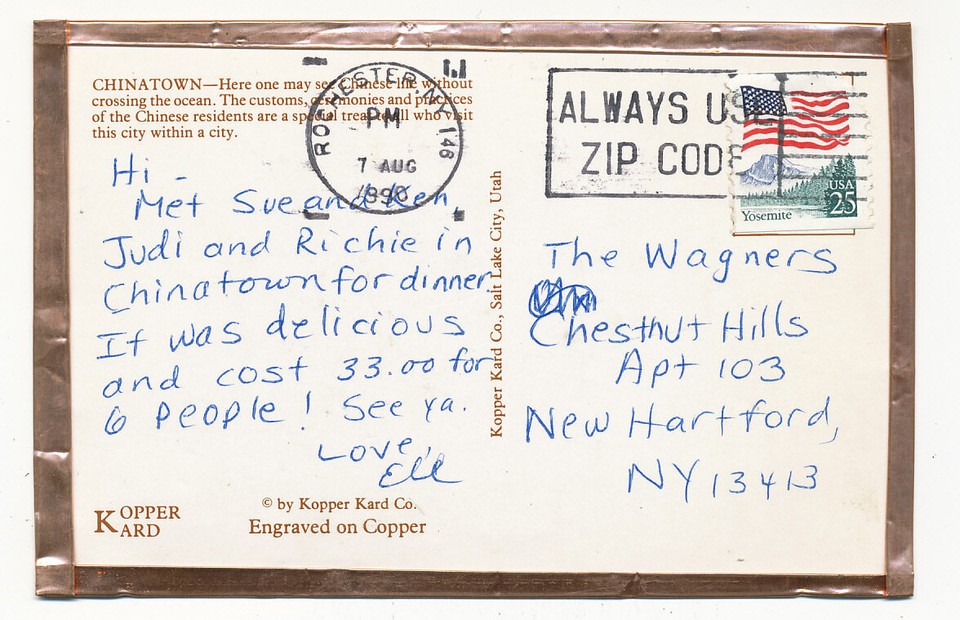 CHINATOWN—Here one may see Chinese life without
crossing the ocean. The customs, ceremonies and practices
of the Chinese residents are a special treat to all who visit
this city within a city.
ROCHESTER, NY 146
PM
7 AUG
1990
ALWAYS USE
ZIP CODE
USA
25
Yosemite
Hi -
Met Sue and Ken,
Judi and Richie in
Chinatown for dinner.
It was delicious
and cost 33.00 for
6 People! See ya.
Love,
Ell
Kopper Kard Co., Salt Lake City, Utah
The Wagners
Chestnut Hills
Apt 103
New Hartford,
NY 13413
KOPPER
KARD
© by Kopper Kard Co.
Engraved on Copper